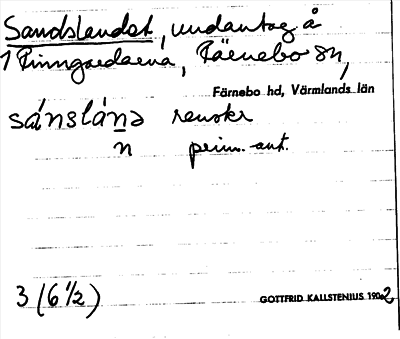 Sandslandet, undantag å
1 Finngårdarna, Färnebo sn,
Färnebo hd, Värmlands län
sánslánə renskr
n prim. ant.
3 (6 1/2)
GOTTFRID KALLSTENIUS 1902